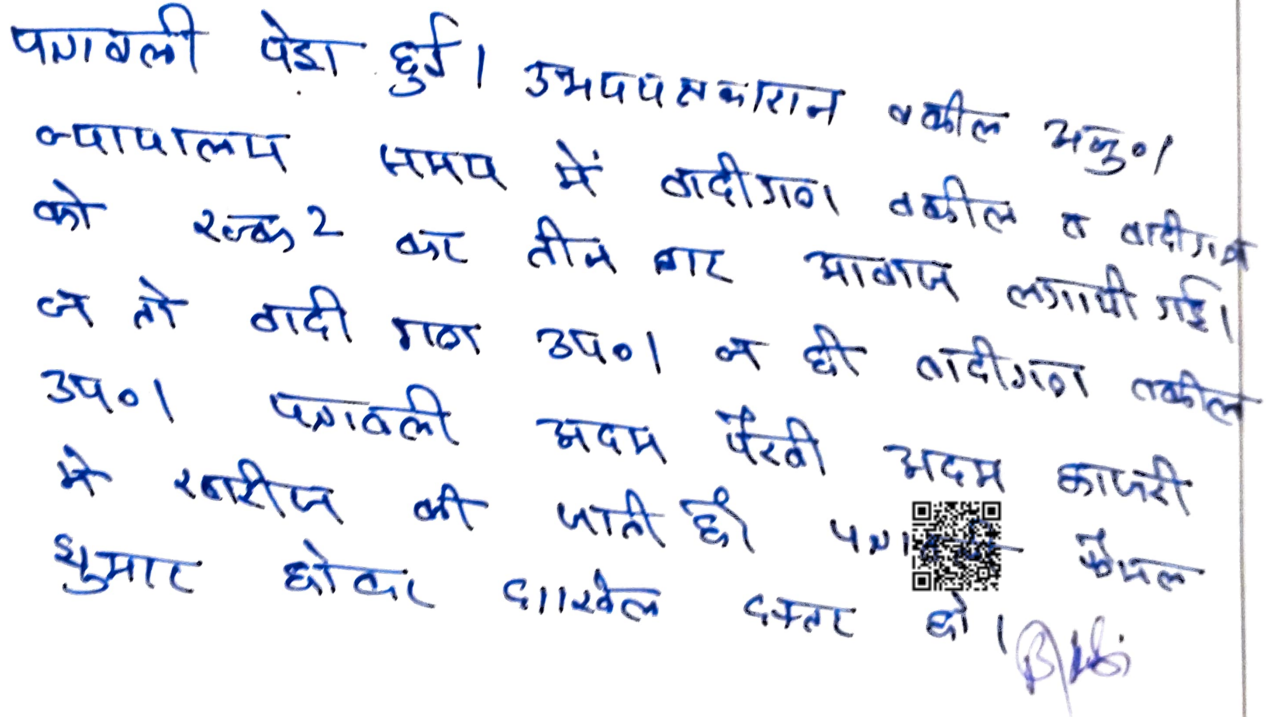 पत्रावली पेश हुई। उभयपक्षकारान वकील अनु०।
न्यायालय समय में वादीगण वकील व वादीगण
को रूक २ कर तीन बार आवाज लगायी गई।
न तो वादी गण उप०। न ही वादीगण वकील
उप०। पत्रावली अदम पैरवी अदम हाजरी
में खारीज की जाती है। फैसल
शुमार होकर दाखिल दफ्तर हो।